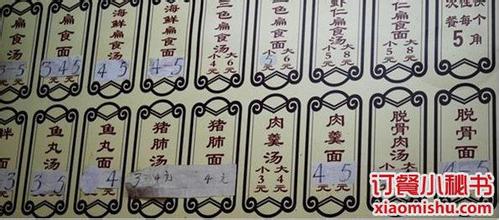 扁食汤
3-5
扁食面
3 4 5
海鲜扁食汤
4 5
海鲜扁食面
4-5
色扁食汤
大6元
小5元
色扁食面
大6元
虾仁扁食汤
大8元
小5元
仁扁食面
大8元
次性快
餐每个
5角
面
鱼丸汤
3 5
鱼丸面
4
猪肺汤
3 4元
猪肺面
4元
肉羹汤
大4元
小3元
肉羹面
4 5
脱骨肉汤
大8元
小5元
脱骨面
4 5
订餐小秘书
xiaomishu.com